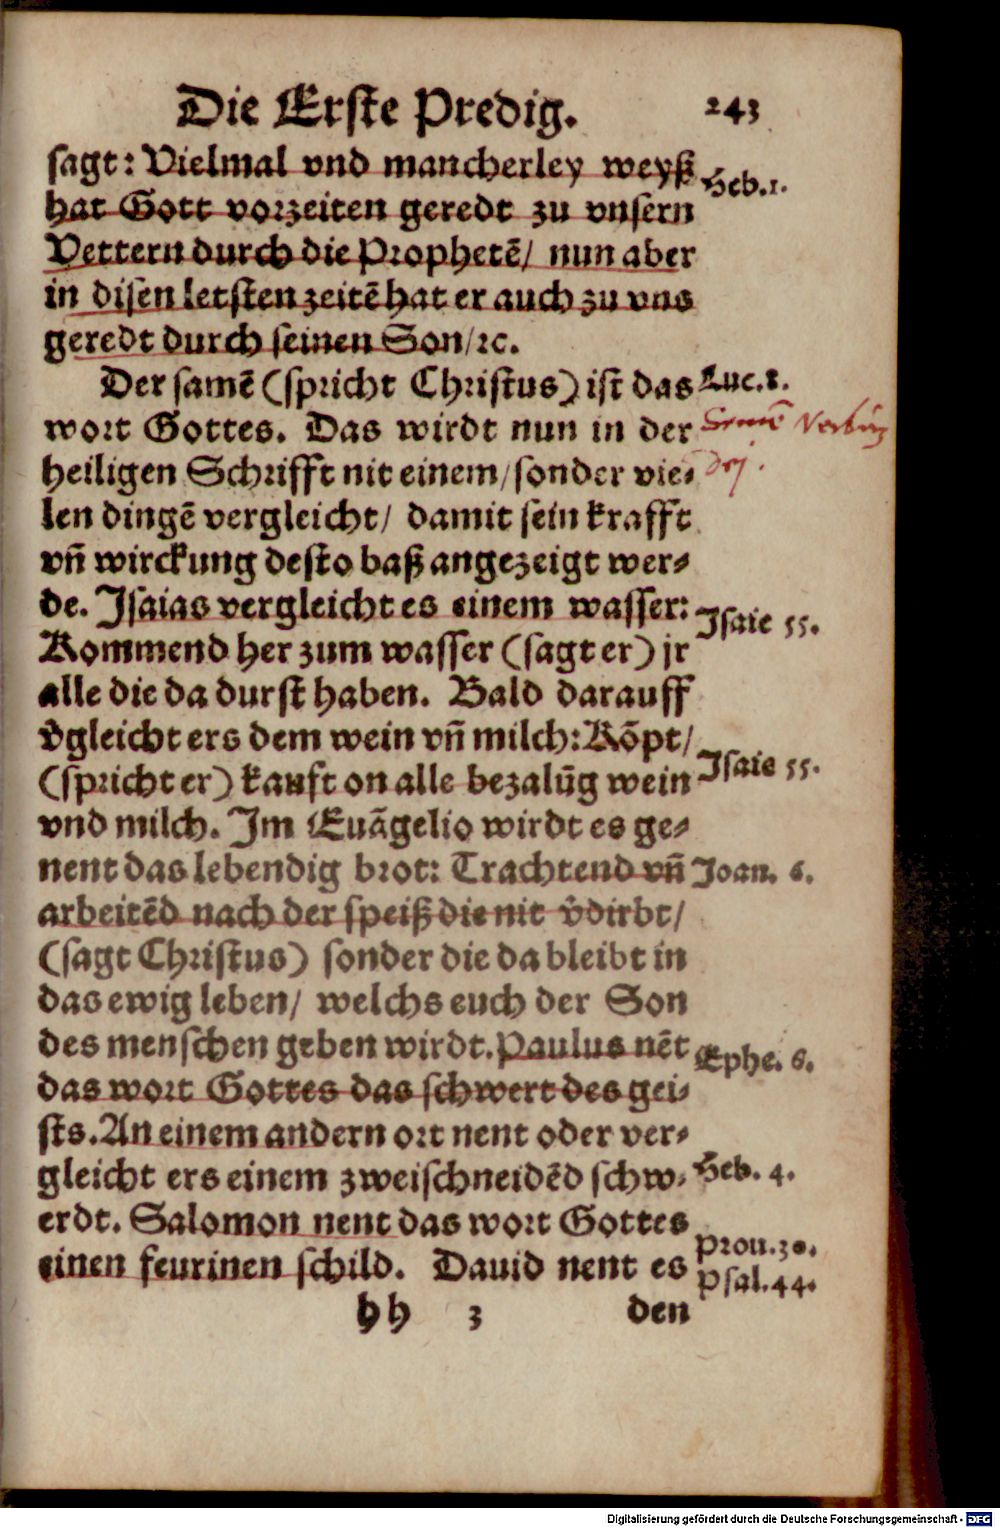 Die Erste Predig. 243
sagt: Vielmal vnd mancherley weyß Heb.1.
hat Gott vorzeiten geredt zu vnsern
Vettern durch die Prophetē/ nun aber
in disen letsten zeitē hat er auch zu vns
geredt durch seinen Son/ꝛc.
Der samē (spricht Christus) ist das Luc.8.
wort Gottes. Das wirdt nun in der
heiligen Schrifft nit einem/ sonder vie⸗
len dingē vergleicht/ damit sein krafft
vñ wirckung desto baß angezeigt wer⸗
de. Isaias vergleicht es einem wasser: Isaie 55.
Kommend her zum wasser (sagt er) jr
alle die da durst haben. Bald darauff
v̄gleicht ers dem wein vñ milch: Kōpt/
(spricht er) kauft on alle bezalūg wein Isaie 55.
vnd milch. Im Euāgelio wirdt es ge⸗
nent das lebendig brot: Trachtend vñ Joan. 6.
arbeitēd nach der speiß die nit v̄dirbt/
(sagt Christus) sonder die da bleibt in
das ewig leben/ welchs euch der Son
des menschen geben wirdt. Paulus nēt Ephe. 6.
das wort Gottes das schwert des gei⸗
sts. An einem andern ort nent oder ver⸗
gleicht ers einem zweischneidēd schw⸗ Heb. 4.
erdt. Salomon nent das wort Gottes Prou.30.
einen feurinen schild. Dauid nent es Psal.44.
hh 3 den
Digitalisierung gefördert durch die Deutsche Forschungsgemeinschaft - DFG